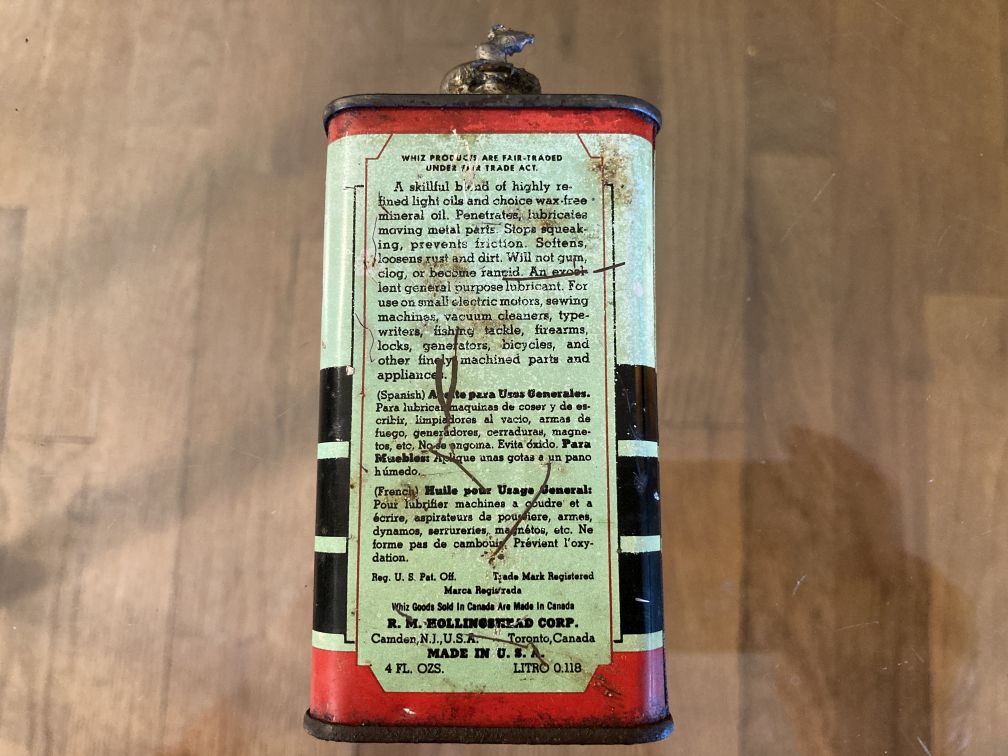 WHIZ PRODUCTS ARE FAIR-TRADED
UNDER FAIR TRADE ACT.
A skillful blend of highly re-
fined light oils and choice wax-free
mineral oil. Penetrates, lubricates
moving metal parts. Stops squeak-
ing, prevents friction. Softens,
loosens rust and dirt. Will not gum,
clog, or become rancid. An excel-
lent general purpose lubricant. For
use on small electric motors, sewing
machines, vacuum cleaners, type-
writers, fishing tackle, firearms,
locks, generators, bicycles, and
other finely machined parts and
appliances.
(Spanish) Aceite para Usos Generales.
Para lubricar maquinas de coser y de es-
cribir, limpiadores al vacio, armas de
fuego, generadores, cerraduras, magne-
tos, etc. No se engoma. Evita óxido. Para
Muebles: Aplique unas gotas a un pano
húmedo.
(French) Huile pour Usage General:
Pour lubrifier machines a coudre et a
écrire, aspirateurs de poussiere, armes,
dynamos, serrureries, magnétos, etc. Ne
forme pas de cambouis. Prévient l'oxy-
dation.
Reg. U. S. Pat. Off. Trade Mark Registered
Marca Registrada
Whiz Goods Sold In Canada Are Made In Canada
R. M. HOLLINGSHEAD CORP.
Camden, N.J., U.S.A. Toronto, Canada
MADE IN U. S. A.
4 FL. OZS. LITRO 0.118